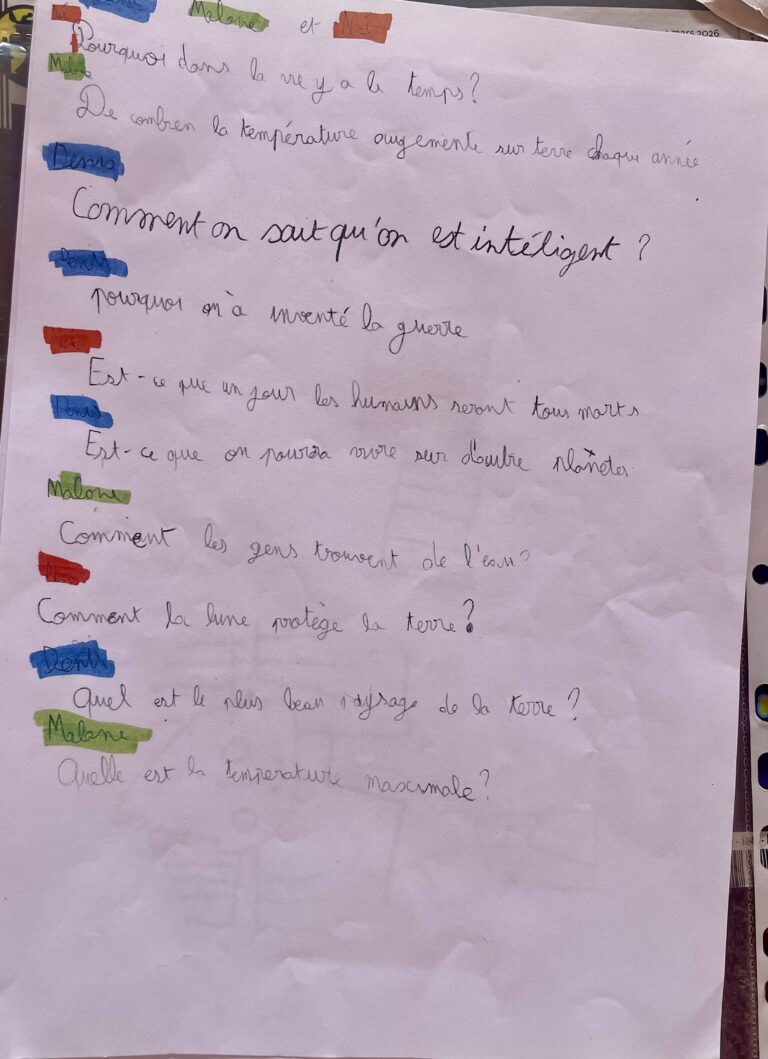 Malone et
Pourquoi dans la vie y a le temps?
Malone
De combien la température augemente sur terre chaque année
Denis
Comment on sait qu'on est intéligent ?
Denis
pourquoi on à inventé la guerre
Est-ce que un jour les humains seront tous morts
Denis
Est-ce que on pourra vivre sur d'autre planètes
Malone
Comment les gens trouvent de l'eau?
Comment la lune protège la terre?
Denis
Quel est le plus beau paysage de la terre ?
Malone
Quelle est la température maximale?
mars 2026